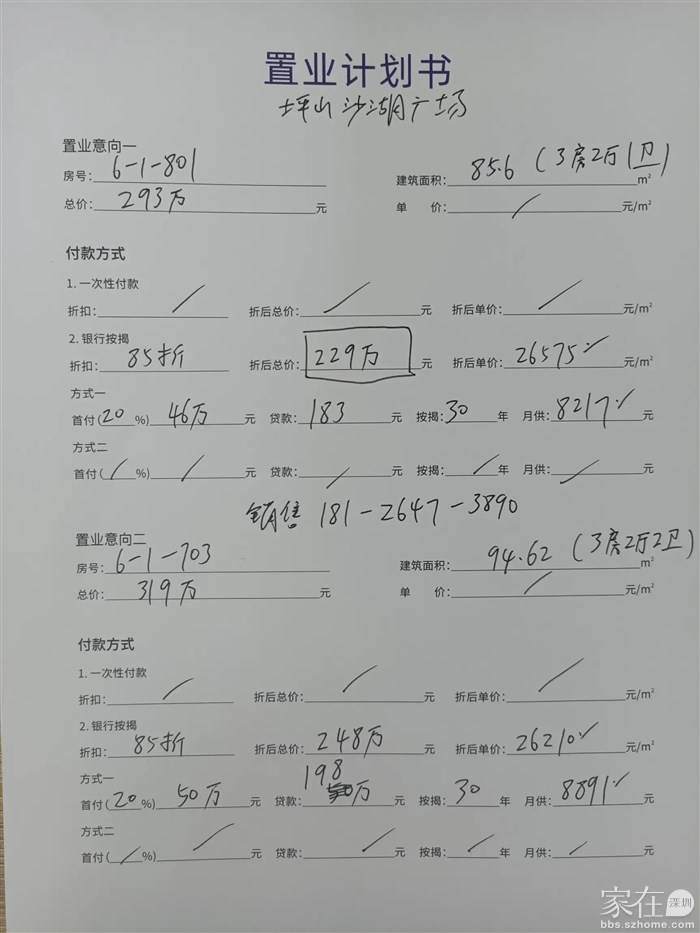 置业计划书
坪山沙湖广场
置业意向一
房号: 6-1-801 建筑面积: 85.6 (3房2厅1卫) m²
总价: 293万 元 单 价: / 元/m²
付款方式
1. 一次性付款
折扣: / 折后总价: / 元 折后单价: / 元/m²
2. 银行按揭
折扣: 85折 折后总价: 229万 元 折后单价: 26575 元/m²
方式一
首付(20%) 46万 元 贷款: 183 元 按揭: 30 年 月供: 8217 元
方式二
首付(/%) / 元 贷款: / 元 按揭: / 年 月供: / 元
销售 181-2647-3890
置业意向二
房号: 6-1-703 建筑面积: 94.62 (3房2厅2卫) m²
总价: 319万 元 单 价: / 元/m²
付款方式
1. 一次性付款
折扣: / 折后总价: / 元 折后单价: / 元/m²
2. 银行按揭
折扣: 85折 折后总价: 248万 元 折后单价: 26210 元/m²
方式一
首付(20%) 50万 元 贷款: 198万 元 按揭: 30 年 月供: 8891 元
方式二
首付(/%) / 元 贷款: / 元 按揭: / 年 月供: / 元
家在深圳
bbs.szhome.com